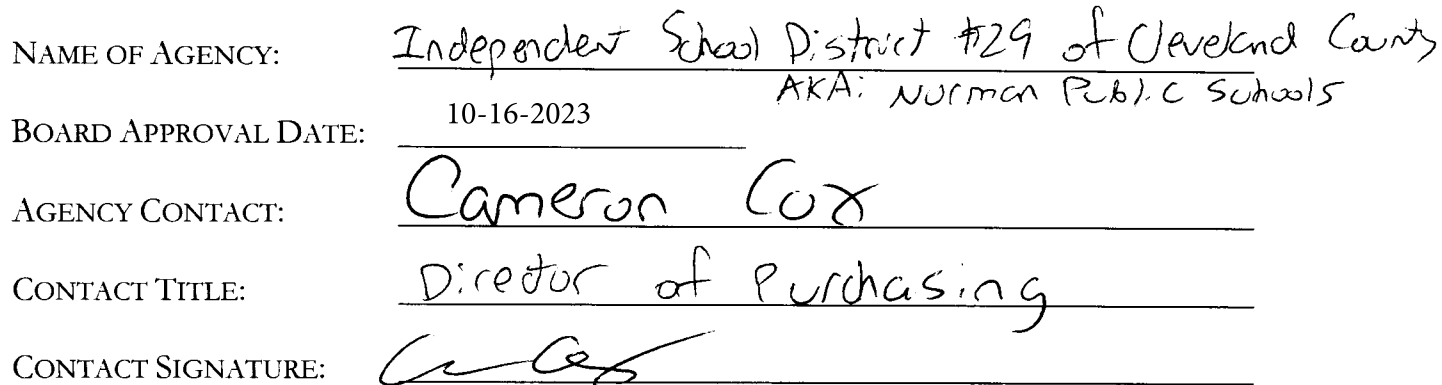 NAME OF AGENCY: Independent School District #29 of Cleveland County
AKA: Norman Public Schools
BOARD APPROVAL DATE: 10-16-2023
AGENCY CONTACT: Cameron Cox
CONTACT TITLE: Director of Purchasing
CONTACT SIGNATURE: